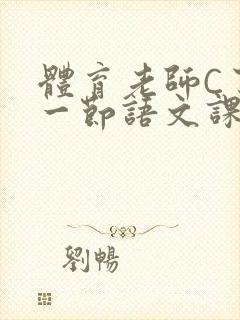 體育老師C
一節語文課
劉暢